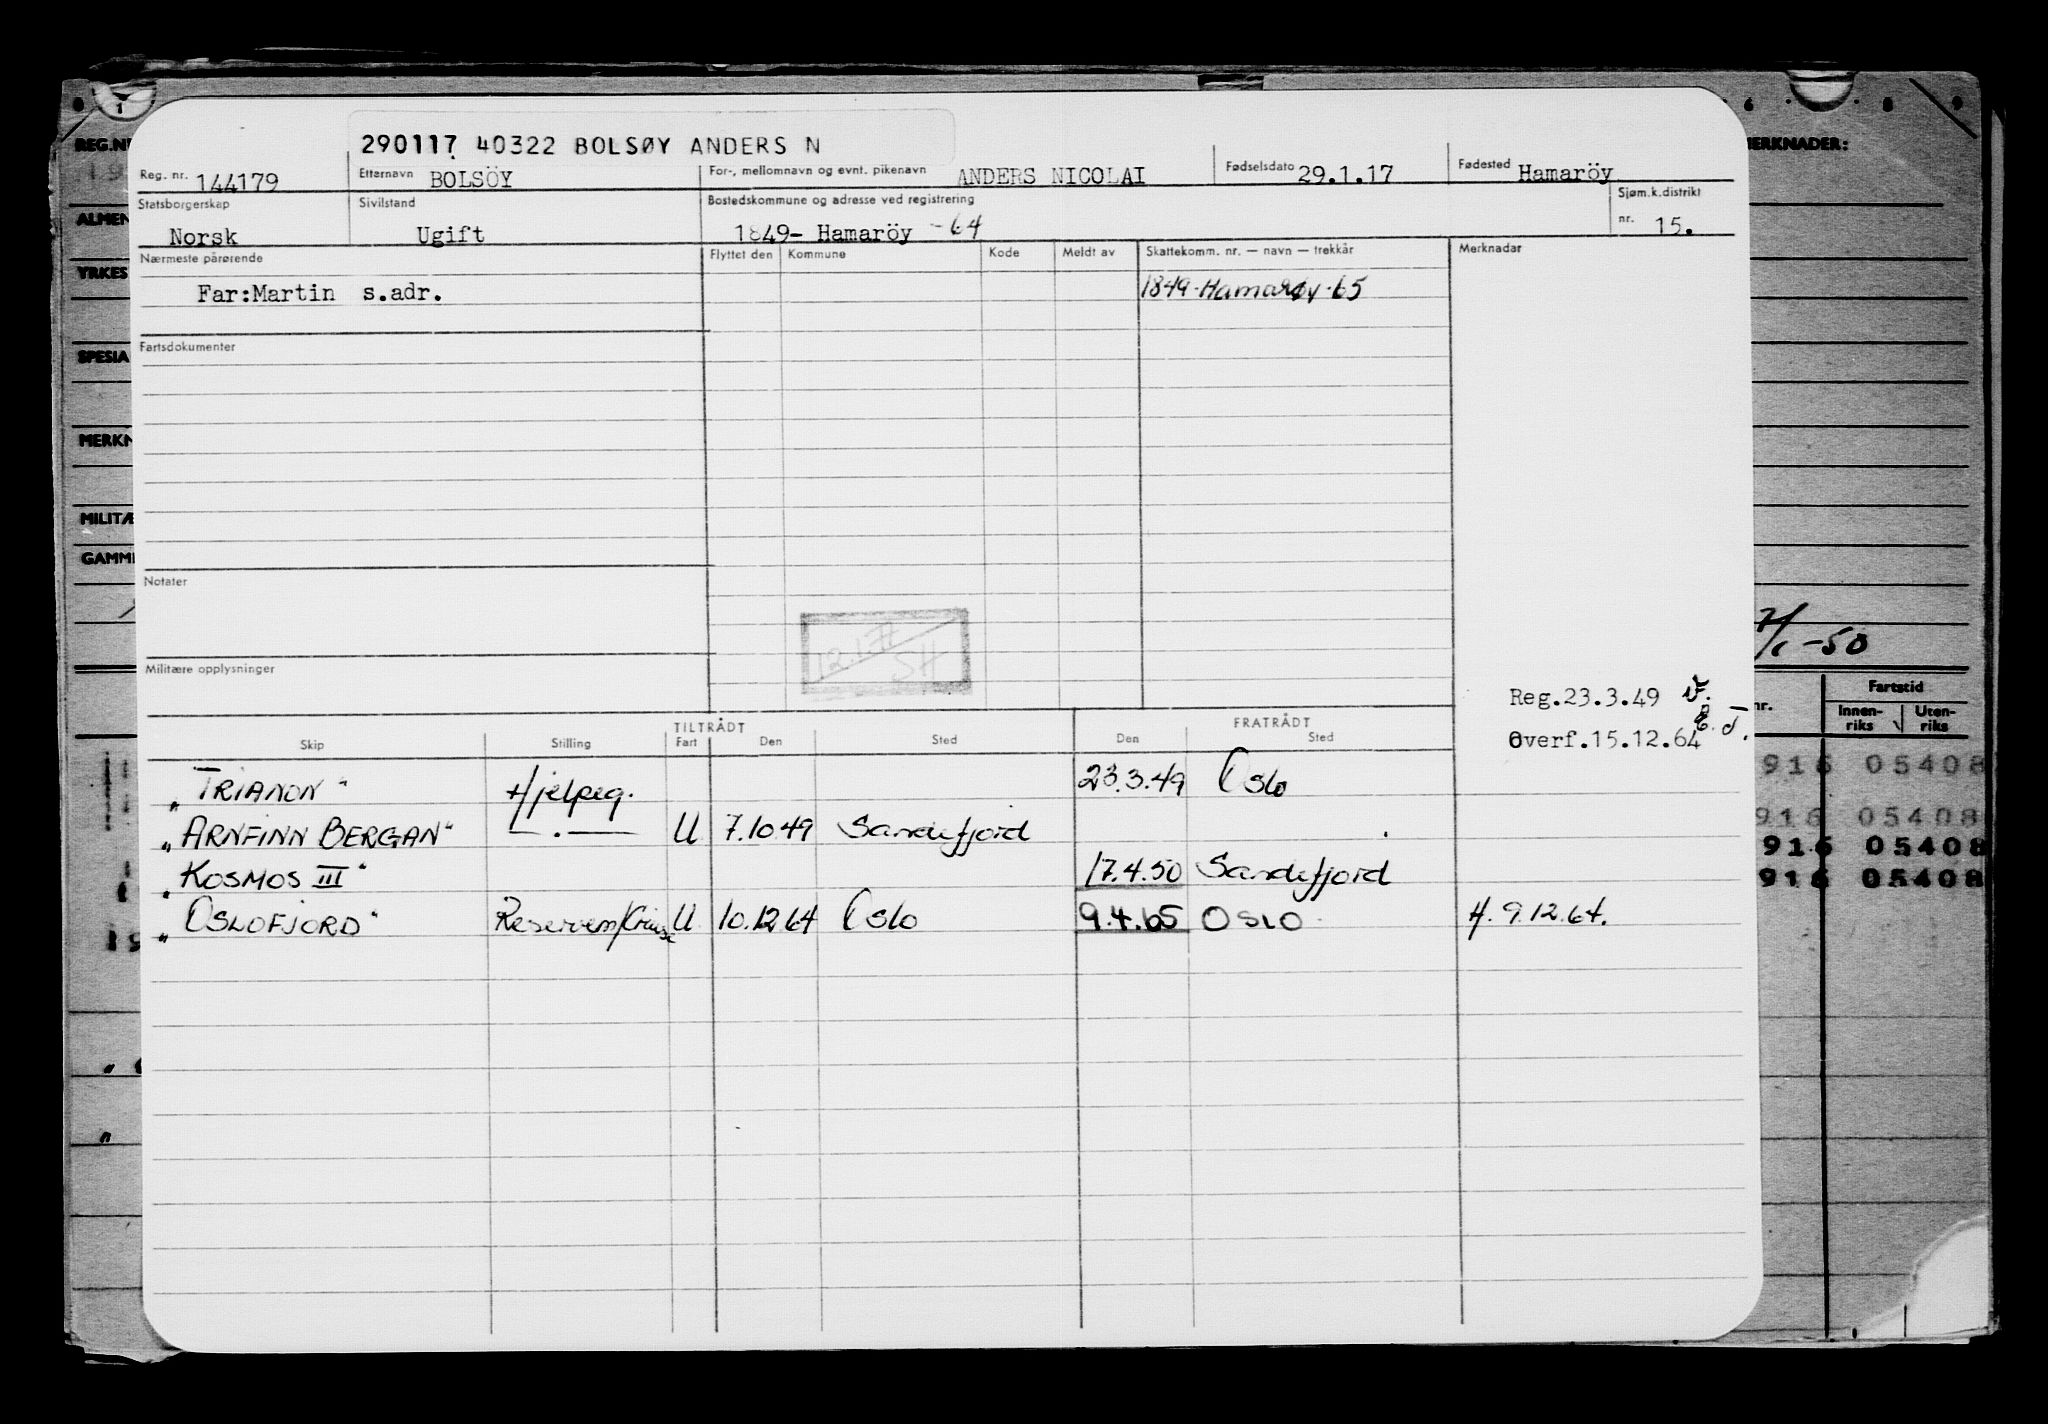 290117 40322 BOLSØY ANDERS N
Reg. nr. 144179 Etternavn BOLSÖY For-, mellomnavn og evnt. pikenavn ANDERS NICOLAI Fødselsdato 29.1.17 Fødested Hamaröy
Statsborgerskap Norsk Sivilstand Ugift Bostedskommune og adresse ved registrering 1849- Hamaröy -64 Sjøm.k.distrikt nr. 15.
Nærmeste pårørende Flyttet den Kommune Kode Meldt av Skattekomm. nr. — navn — trekkår Merknader
Far:Martin s.adr. 1849-Hamarøy-65
Fartsdokumenter
Notater
Militære opplysninger
Reg.23.3.49
Overf.15.12.64
TILTRÅDT FRATRÅDT
Skip Stilling Fart Den Sted Den Sted
"TRIANON" Hjelpeg. 23.3.49 Oslo
"ARNFINN BERGAN" — . — U 7.10.49 Sandefjord
"KOSMOS III" 17.4.50 Sandefjord
"OSLOFJORD" U 10.12.64 Oslo 9.4.65 OSLO H. 9.12.64.
REG.N
ALMEN
YRKES
SPESIA
MERKN
MILITÆ
GAMM
6 8 9
MERKNADER:
-50
nr. Fartstid
Innen-riks Uten-riks
916 05408
916 05408
916 05408
916 05408